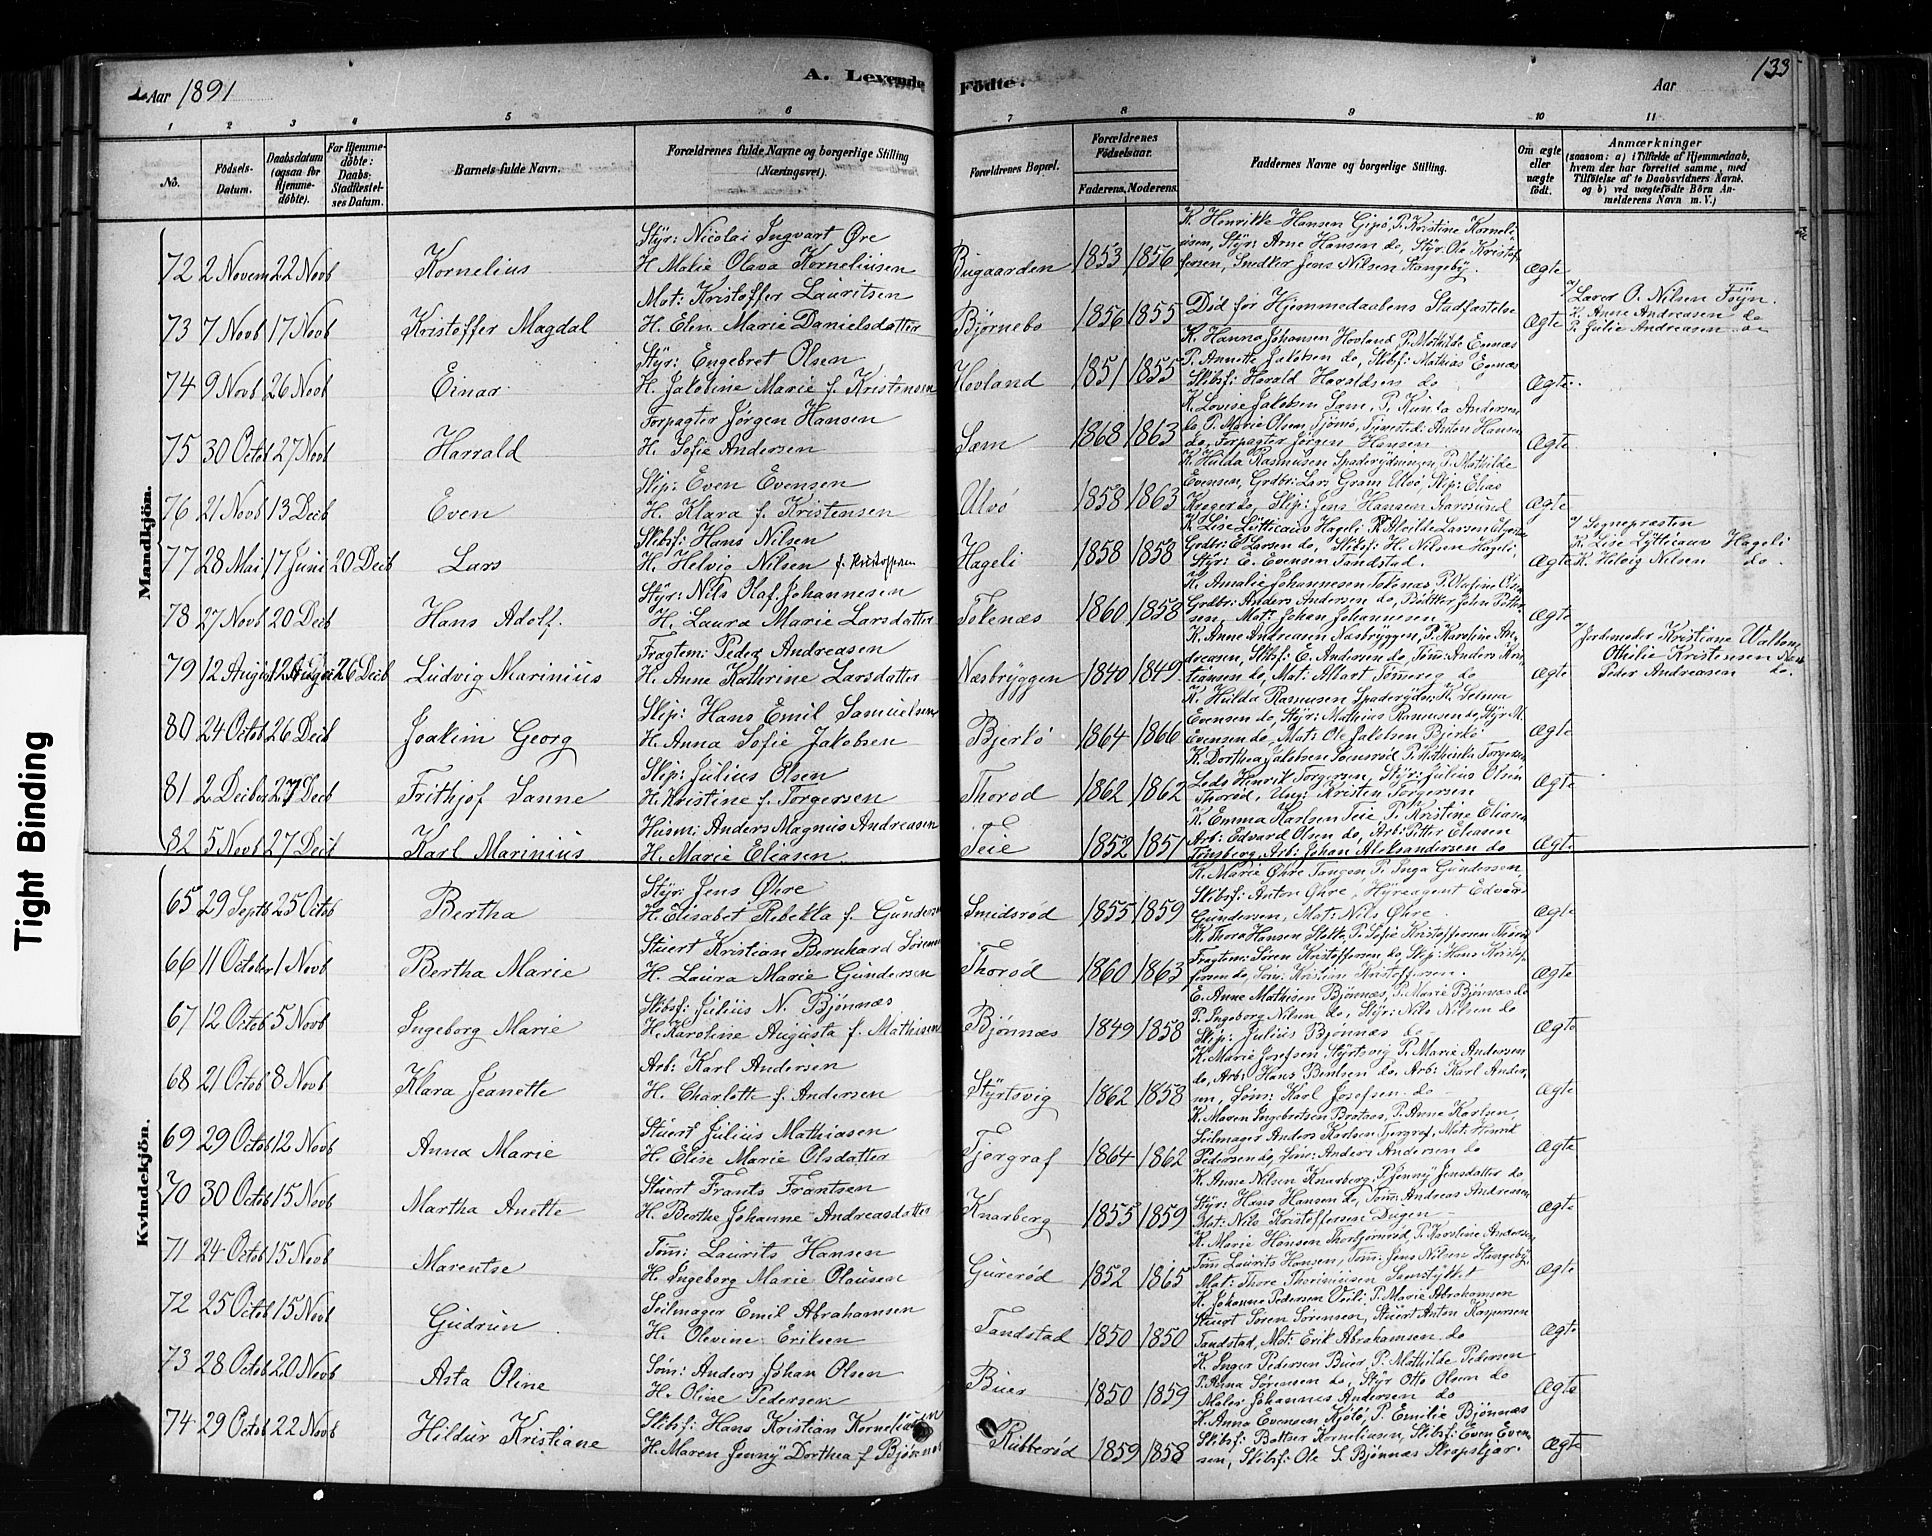 Aar 1891
A. Levende Födte.
Aar
133
1 2 3 4 5 6 7 8 9 10 11
No.
Födsels-Datum.
Daabsdatum (ogsaa for Hjemmedöbte).
For Hjemmedöbte: Daabs-Stadfæstelses Datum.
Barnets fulde Navn.
Forældrenes fulde Navne og borgerlige Stilling (Næringsvei).
Forældrenes Bopæl.
Forældrenes Födselsaar.
Faderens. Moderens.
Faddernes Navne og borgerlige Stilling.
Om ægte eller uægte födt.
Anmærkninger
(saasom: a) i Tilfælde af Hjemmedaab, hvem der har forrettet samme, med Tilföielse af to Daabsvidners Navne, og b) ved uægtefödte Börn Anmelderens Navn m. V.)
Tight Binding
Mandkjön.
72 2 Novem 22 Novb Kornelius
Styr: Nicolai Ingvart Øre
H. Marie Olava Korneliusen
Bugaarden 1853 1856
K. Henrikke Hansen Gipö, P. Kristine Korneli-
usen, Styr: Arne Hansen do, Styr Ole Kristof-
fersen, Snedker Jens Nilsen Stangeby.
Ægte
73 7 Novb 17 Novb Kristoffer Magdal
Mat: Kristoffer Lauritsen
H. Elen Marie Danielsdatter
Bjørnebo 1856 1855
Död för Hjemmedaabens Stadfæstelse
Ægte
O. Nilsen Föyn.
K. Anne Andreasen do
P. Julie Andreasen do
74 9 Novb 26 Novb Einar
Styr: Engebret Olsen
H. Jakobine Marie f. Kristensen
Hovland 1851 1855
K. Hanna Johansen Hovland P. Mathilde Evenæs
P. Annette Jakobsen do, Skibsf: Mathias Evenæs
Skibsf: Harald Haraldsen do
Ægte
75 30 Octob 27 Novb Harrald
Forpagter Jørgen Hansen
H. Sofie Andersen
Sem 1868 1863
K. Lovise Jakobsen Sem, P. Andersen
do P. Marie Olsen Tjömö, Anton Hansen
do, Forpagter Jørgen Hansen
Ægte
76 21 Novb 13 Decb Even
Skip: Even Evensen
H. Klara f. Kristensen
Ulvö 1858 1863
K. Hulda Rasmusen P. Mathilde
Evensen, Grdbr: Lars Gram Ulvö, Skip: Elias
do, Skip: Jens Hansen
Ægte
77 28 Mai 17 Juni 20 Decb Lars
Skibsf: Hans Nilsen
H. Helvig Nilsen f. Kristoffersen
Hageli 1858 1858
K. Lise Lytticauv Hageli Alvilde Larsen
Grdbr: E Larsen do, Skibsf: H. Nilsen Hageli,
Styr: E. Evensen Tandstad.
Ægte
Sognepræsten
K. Lise Lytticauv Hageli
K. Helvig Nilsen do.
78 27 Novb 20 Decb Hans Adolf.
Styr: Nils Olaf Johannesen
H. Laura Marie Larsdatter
Tokenæs 1860 1858
K. Amalie Johannesen Tokenæs
Grdbr: Anders Andersen do, John Petter-
sen, Mat: Johan Johannesen
Ægte
79 12 August 12 August 26 Decb Ludvig Marinius
Fragtem: Peder Andreasen
H. Anne Kathrine Larsdatter
Næsbryggen 1840 1849
K. Anne Andreasen Næsbryggen, P. Karoline An-
dreasen, Skibsf: E. Andersen do, Töm: Anders Kris-
tiansen do, Mat: Albart do
Ægte
Jordemoder Kristiane
Othilie Kristensen
Peder Andreasen do.
80 24 Octob 26 Decb Joakim Georg
Skip: Hans Emil Samuelsen
H. Anna Sofie Jakobsen
Bjerkö 1864 1866
K. Hulda Rasmusen K. Selma
Evensen do, Styr: Mathias Rasmusen do, Styr M.
Evensen do, Mat: Ole Jakobsen Bjerkö
Ægte
81 2 Decber 27 Decb Frithjof Sanne
Skip: Julius Olsen
H. Kristine f. Torgersen
Thorød 1862 1862
K. Dorthea Jakobsen P. Mathilde Torgersen
Lods Henrik Torgersen, Styr: Julius Olsen
Thorød, Ung: Kristen Torgersen
Ægte
82 5 Novb 27 Decb Karl Marinius
Husm: Anders Magnus Andreasen
H. Marie Eliasen
Teie 1852 1851
K. Emma Karlsen Teie, P. Kristine Eliasen
Arb: Edvard Olsen do, Arb: Petter Eliasen
Tønsberg, Arb: Johan Aleksandersen do
Ægte
Kvindekjön.
65 29 Septb 25 Octob Bertha
Styr: Jens Øhre
H. Elisabet Rebekka f. Gundersen
Smidsrød 1855 1859
K. Marie Øhre Tangen P. Inga Gundersen,
Skibsf: Anton Øhre, Hyreagent Edvard
Gundersen, Mat: Nils Øhre.
Ægte
66 11 October 1 Novb Bertha Marie
Stuert Kristian Bernhard Sørensen
H. Laura Marie Gundersen
Thorød 1860 1863
K. Thora Hansen P. Sofie Kristoffersen Thorød
Fragtem: Sören Kristoffersen do, Skip: Hans Kristof-
fersen do, Sөm: Kristian Kristoffersen.
Ægte
67 12 Octob 5 Novb Ingeborg Marie
Skibsf: Julius N. Bjønnæs
H. Karoline Augusta f. Mathisen
Bjønnæs 1849 1858
E. Anne Mathisen Bjønnæs, P. Marie Bjønnæs do
P. Ingeborg Nilsen do, Styr: Nils Nilsen do
Skip: Julius Bjønnæs do
Ægte
68 21 Octob 8 Novb Klara Jeanette
Arb: Karl Andersen
H. Charlotte f. Andersen
Styrtsvig 1862 1858
K. Marie Josefsen Styrtsvig P. Marie Andersen
do, Arb: Hans Berntsen do, Arb: Karl Ander-
sen, Sөm: Karl Josefsen do
Ægte
69 29 Octob 12 Novb Anna Marie
Stuert Julius Mathiasen
H. Elise Marie Olsdatter
Tjørgraf 1864 1862
K. Maren Ingebretsen Bratnæs, P. Anne Karlsen
Seilmager Anders Karlsen Tjørgraf, Mat: Henrik
Pedersen do, Sөm: Anders Andersen do
Ægte
70 30 Octob 15 Novb Martha Anette
Stuert Frants Frantsen
H. Berthe Johanne Andreasdatter
Knarberg 1855 1859
K. Anne Nilsen Knarberg, P. Jenny Jensdatter do
Styr: Hans Hansen do, Töm: Andreas Andreasen
Mat: Nils Kristoffersen Dugen
Ægte
71 24 Octob 15 Novb Marentse
Töm: Laurits Hansen
H. Ingeborg Marie Olausen
Gurerød 1852 1865
K. Marie Hansen Thorbjørnrød, P. Karoline Andersen,
Töm Laurits Hansen, Töm: Jens Nilsen Stangeby,
Mat: Thore Thoriniusen
Ægte
72 25 Octob 15 Novb Gudrun
Seilmager Emil Abrahamsen
H. Olevene Eriksen
Tandstad 1850 1850
K. Johanne Pedersen Veilö P. Marie Abrahamsen
Stuert Sören Sörensen, Stuert Anton Kaspersen
Tandstad, Mat: Erik Abrahamsen do
Ægte
73 28 Octob 20 Novb Asta Oline
Sөm: Anders Johan Olsen
H. Oline Pedersen
Buer 1850 1859
K. Inger Pedersen Buer, P. Mathilde Pedersen
P. Anna Sørensen do, Styr Otto Olsen do
Maler Johannes Andersen do
Ægte
74 29 Octob 22 Novb Hildur Kristiane
Skibsf: Hans Kristian Korneliusen
H. Maren Jenny Dorthea f Bjønnæs
Rubberød 1859 1858
K. Anna Evensen Kjölö, P. Emilie Bjønnæs
Skibsf: Korneliusen, Skibsf: Even Even-
sen, Skibsf: Ole S. Bjønnæs
Ægte